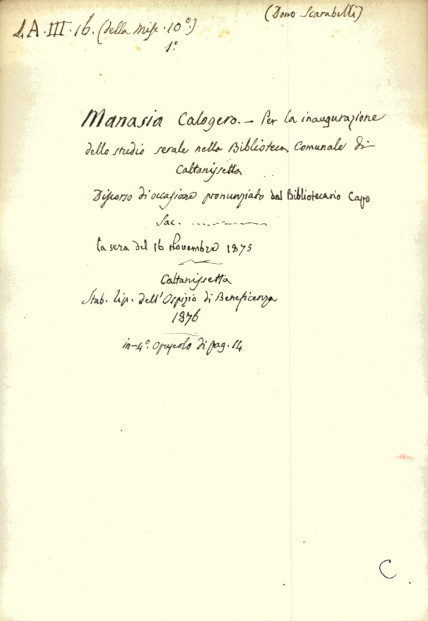 (Dono Scarabelli)
L.A.III.16. (della Misc. 10°.)
1°
Manasia Calogero. — Per la inaugurazione
dello studio serale nella Biblioteca Comunale di
Caltanissetta
Discorso d'occasione pronunziato dal Bibliotecario Capo
Sac.
la sera del 16 Novembre 1875
Caltanissetta
Stab. Tip. dell'Ospizio di Beneficenza
1876
in-4°. Opuscolo di pag. 14
C